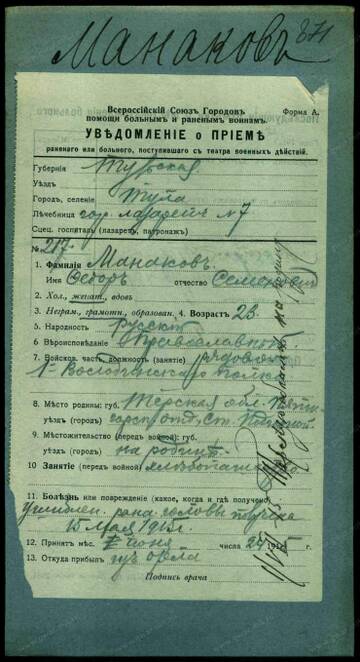 Манаковъ
Всероссійскій Союзъ Городовъ
помощи больнымъ и раненымъ воинамъ.
Форма А.
УВѢДОМЛЕНІЕ о ПРІЕМѢ
раненаго или больного, поступившаго съ театра военныхъ дѣйствій.
Губернія Тульская
Уѣздъ
Городъ, селеніе Тула
Лѣчебница гор. лазаретъ № 7
Спец. госпиталь (лазаретъ, патронажъ)
№ 217
1. Фамилія Манаковъ
Имя Федоръ отчество Семеновичъ
2. Хол., женат., вдовъ
3. Неграм., грамотн., образован. 4. Возрастъ 23.
5. Народность русскій
6. Вѣроисповѣданіе Православный
7. Войсков. часть, должность (занятіе) рядовой
1-
8. Мѣсто родины: губ. Терская обл.
уѣздъ (городъ) отд. ст.
9. Мѣстожительство (передъ войной): губ.
уѣздъ (городъ) на родинѣ
10. Занятіе (передъ войной)
11. Болѣзнь или поврежденіе (какое, когда и гдѣ получено)
рана головы
15 мая 1915г.
12. Принятъ мѣс. июня числа 24 1915 г.
13. Откуда прибылъ изъ Орла
Подпись врача